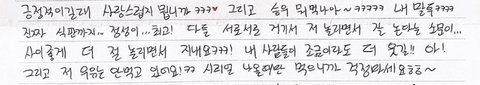 긍정적이길래 사랑스럽지 뭡니까 ㅋㅋㅋ♥ 그리고 승우 뭐먹나아~ㅋㅋㅋㅋㅋ 내 말들ㅋㅋㅋㅋ
진짜 식판까지~ 정성이...최고! 다들 서로서로 거기서 저 놀리면서 잘 논다는 소문이...
사이좋게 더 절 놀리면서 지내요??? 내 사람들이 조금이라도 더 웃길!! 아!
그리고 저 우유는 안먹고 있어요!ㅋㅋ 시리얼 나올때만 먹으니까 걱정마세요ㅎㅎ~